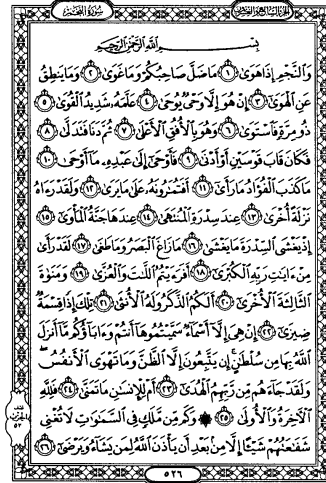 الجزء السابع والعشرون سورة النجم
بِسْمِ اللَّهِ الرَّحْمَٰنِ الرَّحِيمِ
وَالنَّجْمِ إِذَا هَوَىٰ ١ مَا ضَلَّ صَاحِبُكُمْ وَمَا غَوَىٰ ٢ وَمَا يَنطِقُ
عَنِ الْهَوَىٰ ٣ إِنْ هُوَ إِلَّا وَحْيٌ يُوحَىٰ ٤ عَلَّمَهُ شَدِيدُ الْقُوَىٰ ٥
ذُو مِرَّةٍ فَاسْتَوَىٰ ٦ وَهُوَ بِالْأُفُقِ الْأَعْلَىٰ ٧ ثُمَّ دَنَا فَتَدَلَّىٰ ٨
فَكَانَ قَابَ قَوْسَيْنِ أَوْ أَدْنَىٰ ٩ فَأَوْحَىٰ إِلَىٰ عَبْدِهِ مَا أَوْحَىٰ ١٠
مَا كَذَبَ الْفُؤَادُ مَا رَأَىٰ ١١ أَفَتُمَارُونَهُ عَلَىٰ مَا يَرَىٰ ١٢ وَلَقَدْ رَءَاهُ
نَزْلَةً أُخْرَىٰ ١٣ عِندَ سِدْرَةِ الْمُنتَهَىٰ ١٤ عِندَهَا جَنَّةُ الْمَأْوَىٰ ١٥
إِذْ يَغْشَى السِّدْرَةَ مَا يَغْشَىٰ ١٦ مَا زَاغَ الْبَصَرُ وَمَا طَغَىٰ ١٧ لَقَدْ رَأَىٰ
مِنْ ءَايَاتِ رَبِّهِ الْكُبْرَىٰ ١٨ أَفَرَءَيْتُمُ اللَّاتَ وَالْعُزَّىٰ ١٩ وَمَنَوٰةَ
الثَّالِثَةَ الْأُخْرَىٰ ٢٠ أَلَكُمُ الذَّكَرُ وَلَهُ الْأُنثَىٰ ٢١ تِلْكَ إِذًا قِسْمَةٌ
ضِيزَىٰ ٢٢ إِنْ هِيَ إِلَّا أَسْمَاءٌ سَمَّيْتُمُوهَا أَنتُمْ وَءَابَاؤُكُم مَّا أَنزَلَ
اللَّهُ بِهَا مِن سُلْطَانٍ إِن يَتَّبِعُونَ إِلَّا الظَّنَّ وَمَا تَهْوَى الْأَنفُسُ
وَلَقَدْ جَاءَهُم مِّن رَّبِّهِمُ الْهُدَىٰ ٢٣ أَمْ لِلْإِنسَانِ مَا تَمَنَّىٰ ٢٤ فَلِلَّهِ
الْآخِرَةُ وَالْأُولَىٰ ٢٥ ۞ وَكَم مِّن مَّلَكٍ فِي السَّمَاوَاتِ لَا تُغْنِي
شَفَاعَتُهُمْ شَيْئًا إِلَّا مِن بَعْدِ أَن يَأْذَنَ اللَّهُ لِمَن يَشَاءُ وَيَرْضَىٰ ٢٦
٥٢٦